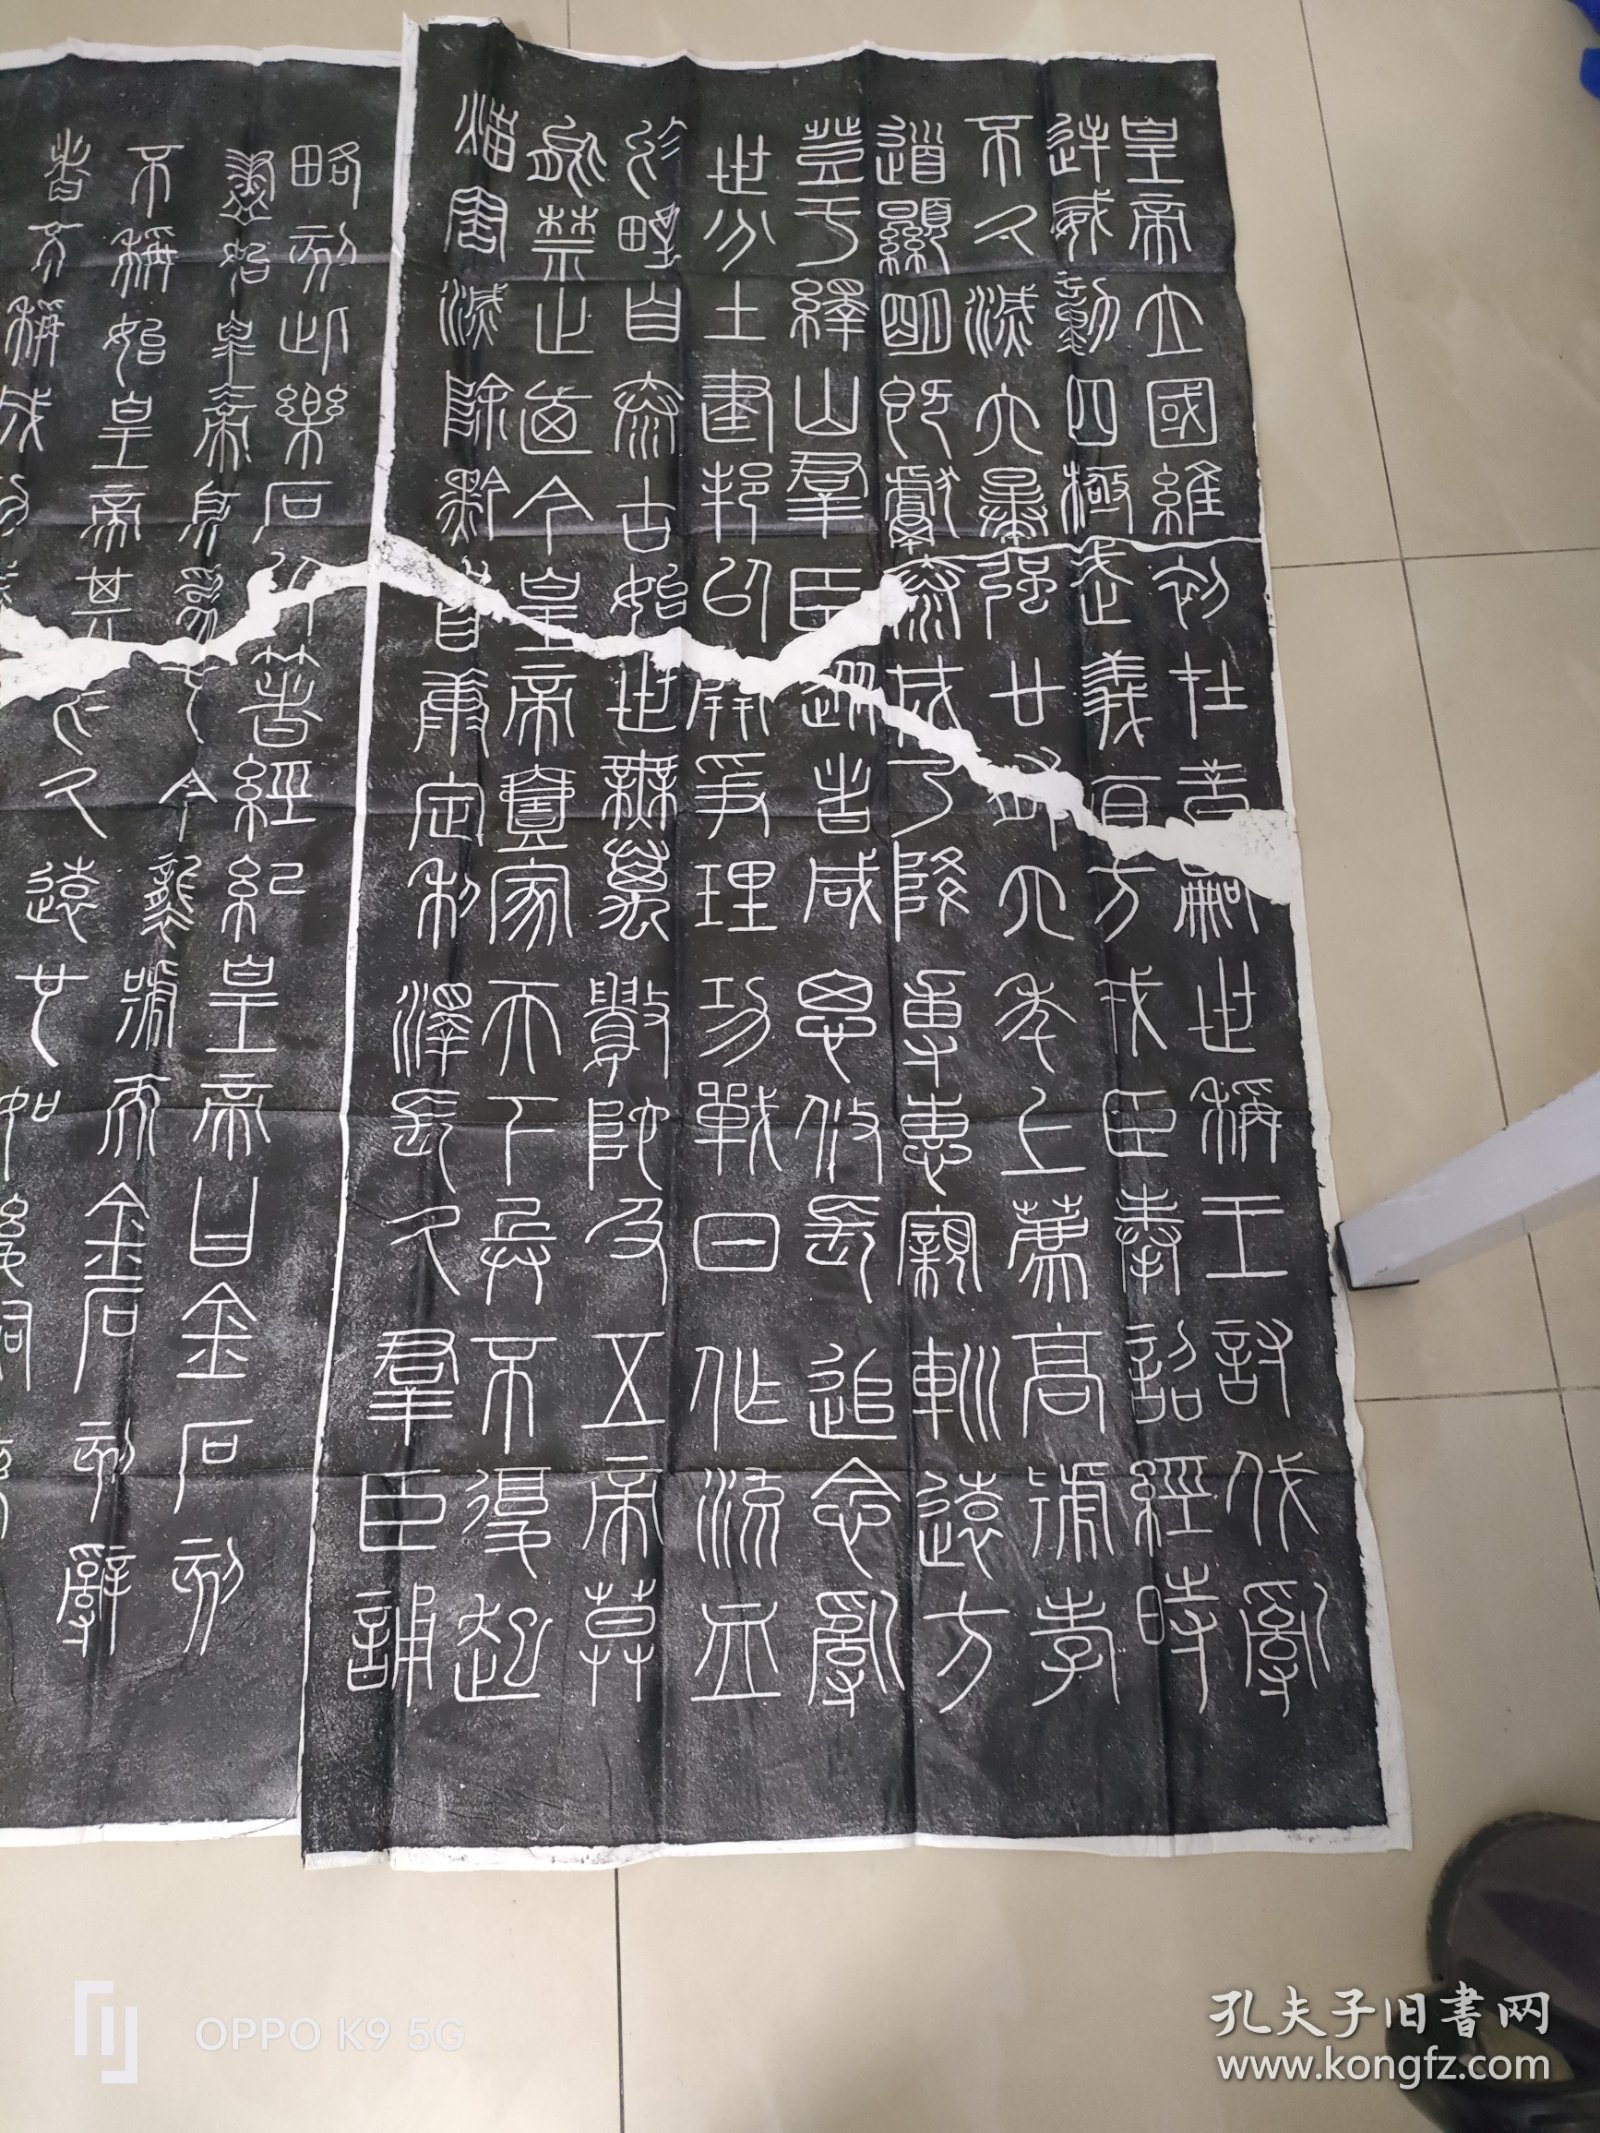 皇帝立國維初在昔嗣世稱王討伐亂
逆威動四極武義直方戎臣奉詔經時
不久滅六暴強廿有六年上薦高號孝
道顯明既獻泰成乃降專惠親巡遠方
登于繹山羣臣從者咸思攸長追念亂
世分土建邦以開爭理功戰日作流血
於野自泰古始世無萬數陀及五帝莫
能禁止廼今皇帝壹家天下兵不復起
烖害滅除黔首康定利澤長久羣臣誦
略刻此樂石以著經紀皇帝曰金石刻
盡始皇帝所為也今襲號而金石刻辭
不稱始皇帝其於久遠也如後嗣為
者不稱成功
OPPO K9 5G
孔夫子旧书网
www.kongfz.com